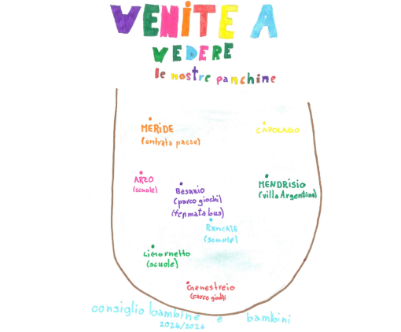 VENITE A
VEDERE
le nostre panchine
MERIDE
(entrata paese)
CAPOLAGO
ARZO
(scuole)
BESAZIO
(parco giochi)
(fermata bus)
MENDRISIO
(villa Argentina)
RANCATE
(scuole)
Ligornetto
(scuole)
Genestrerio
(parco giochi)
consiglio bambine e bambini